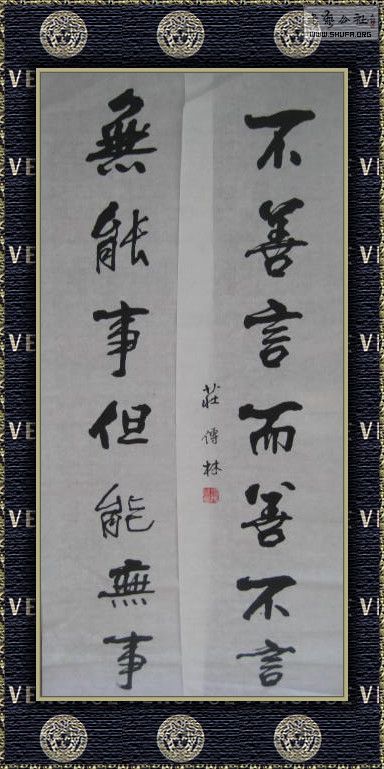 書藝公社
WWW.SHUFA.ORG
不善言而善不言
莊傳林
無能事但能無事